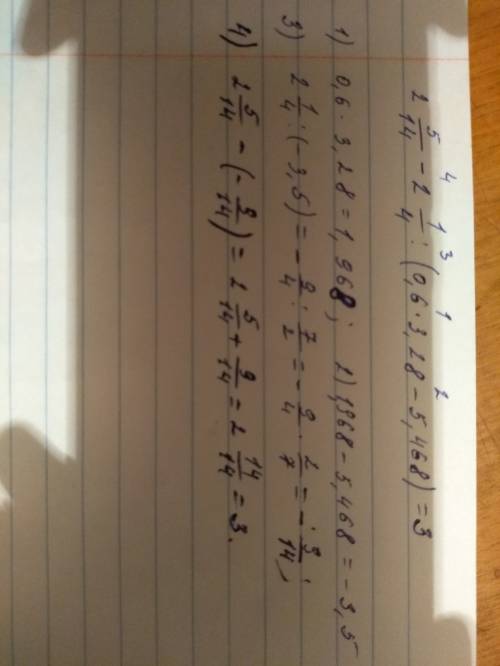 4 3 1 2
2 5/14 - 2 1/4 : (0,6 · 3,28 - 5,468) = 3
1) 0,6 · 3,28 = 1,968; 2) 1,968 - 5,468 = -3,5
3) 2 1/4 : (-3,5) = - 9/4 : 7/2 = - 9/4 · 2/7 = - 9/14;
4) 2 5/14 - (- 9/14) = 2 5/14 + 9/14 = 2 14/14 = 3.